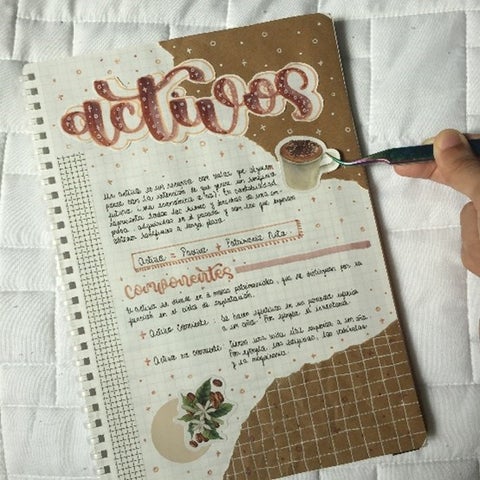 activos
Un activo es un recurso con valor que alguien
posee con la intención de que genere un beneficio
futuro (sea económico o no). En contabilidad,
representa todos los bienes y derechos de una em-
presa, adquiridos en el pasado y con los que esperan
obtener beneficios a largo plazo.
Activo = Pasivo + Patrimonio Neto
componentes
El activo se divide en 2 masas patrimoniales, que se distinguen por la
función en el ciclo de explotación.
+ Activo corriente: Se hacen efectivos en un periodo inferior
a un año. Por ejemplo, el inventario
+ Activo no corriente: Tienen una vida útil superior a un año.
Por ejemplo, los edificios, los vehículos
y la maquinaria.